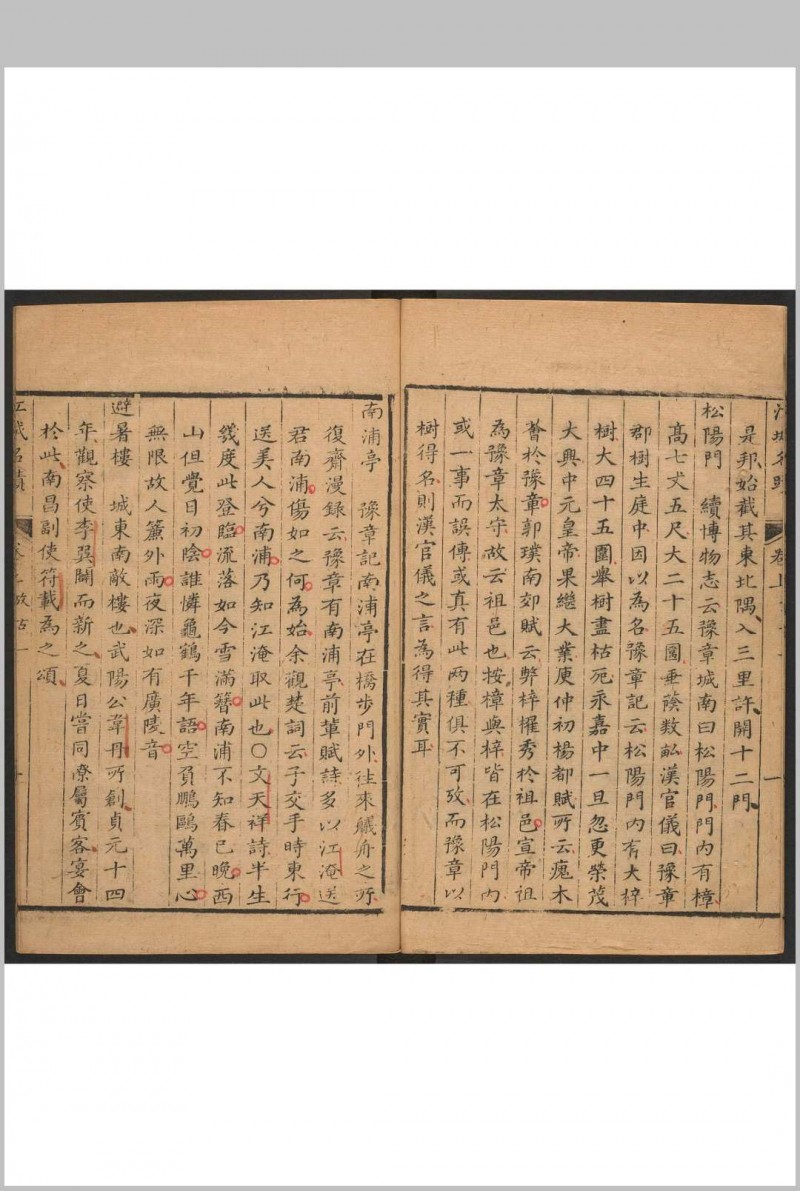 是邦始截其東北隅入三里許開十二門
松陽門　續博物志云豫章城南曰松陽門門內有樟
高七丈五尺大二十五圍垂蔭數畝漢官儀曰豫章
郡樹生庭中因以為名豫章記云松陽門內有大梓
樹大四十五圍舉樹盡枯死永嘉中一旦忽更榮茂
大興中元皇帝果繼大業庾仲初楊都賦所云瘣木
薈於豫章郭璞南郊賦云弊梓擢秀於祖邑宣帝祖
為豫章太守故云祖邑也按樟與梓皆在松陽門內
或一事而誤傳或真有此兩種俱不可攷而豫章以
樹得名則漢官儀之言為得其實耳
南浦亭　豫章記南浦亭在橋步門外往來艤舟之所
復齋漫録云豫章有南浦亭前輩賦詩多以江淹送
君南浦傷如之何為始余觀楚詞云子交手時東行
送美人兮南浦乃知江淹取此也〇文天祥詩半生
幾度此登臨流落如今雪滿簪南浦不知春已晚西
山但覺日初陰誰憐龜鶴千年語空負鵬鷗萬里心
無限故人簾外雨夜深如有廣陵音
避暑樓　城東南敵樓也武陽公韋丹所創貞元十四
年觀察使李巽闢而新之夏日嘗同寮屬賓客宴會
於此南昌副使符載為之頌
江城名蹟　卷上故古一